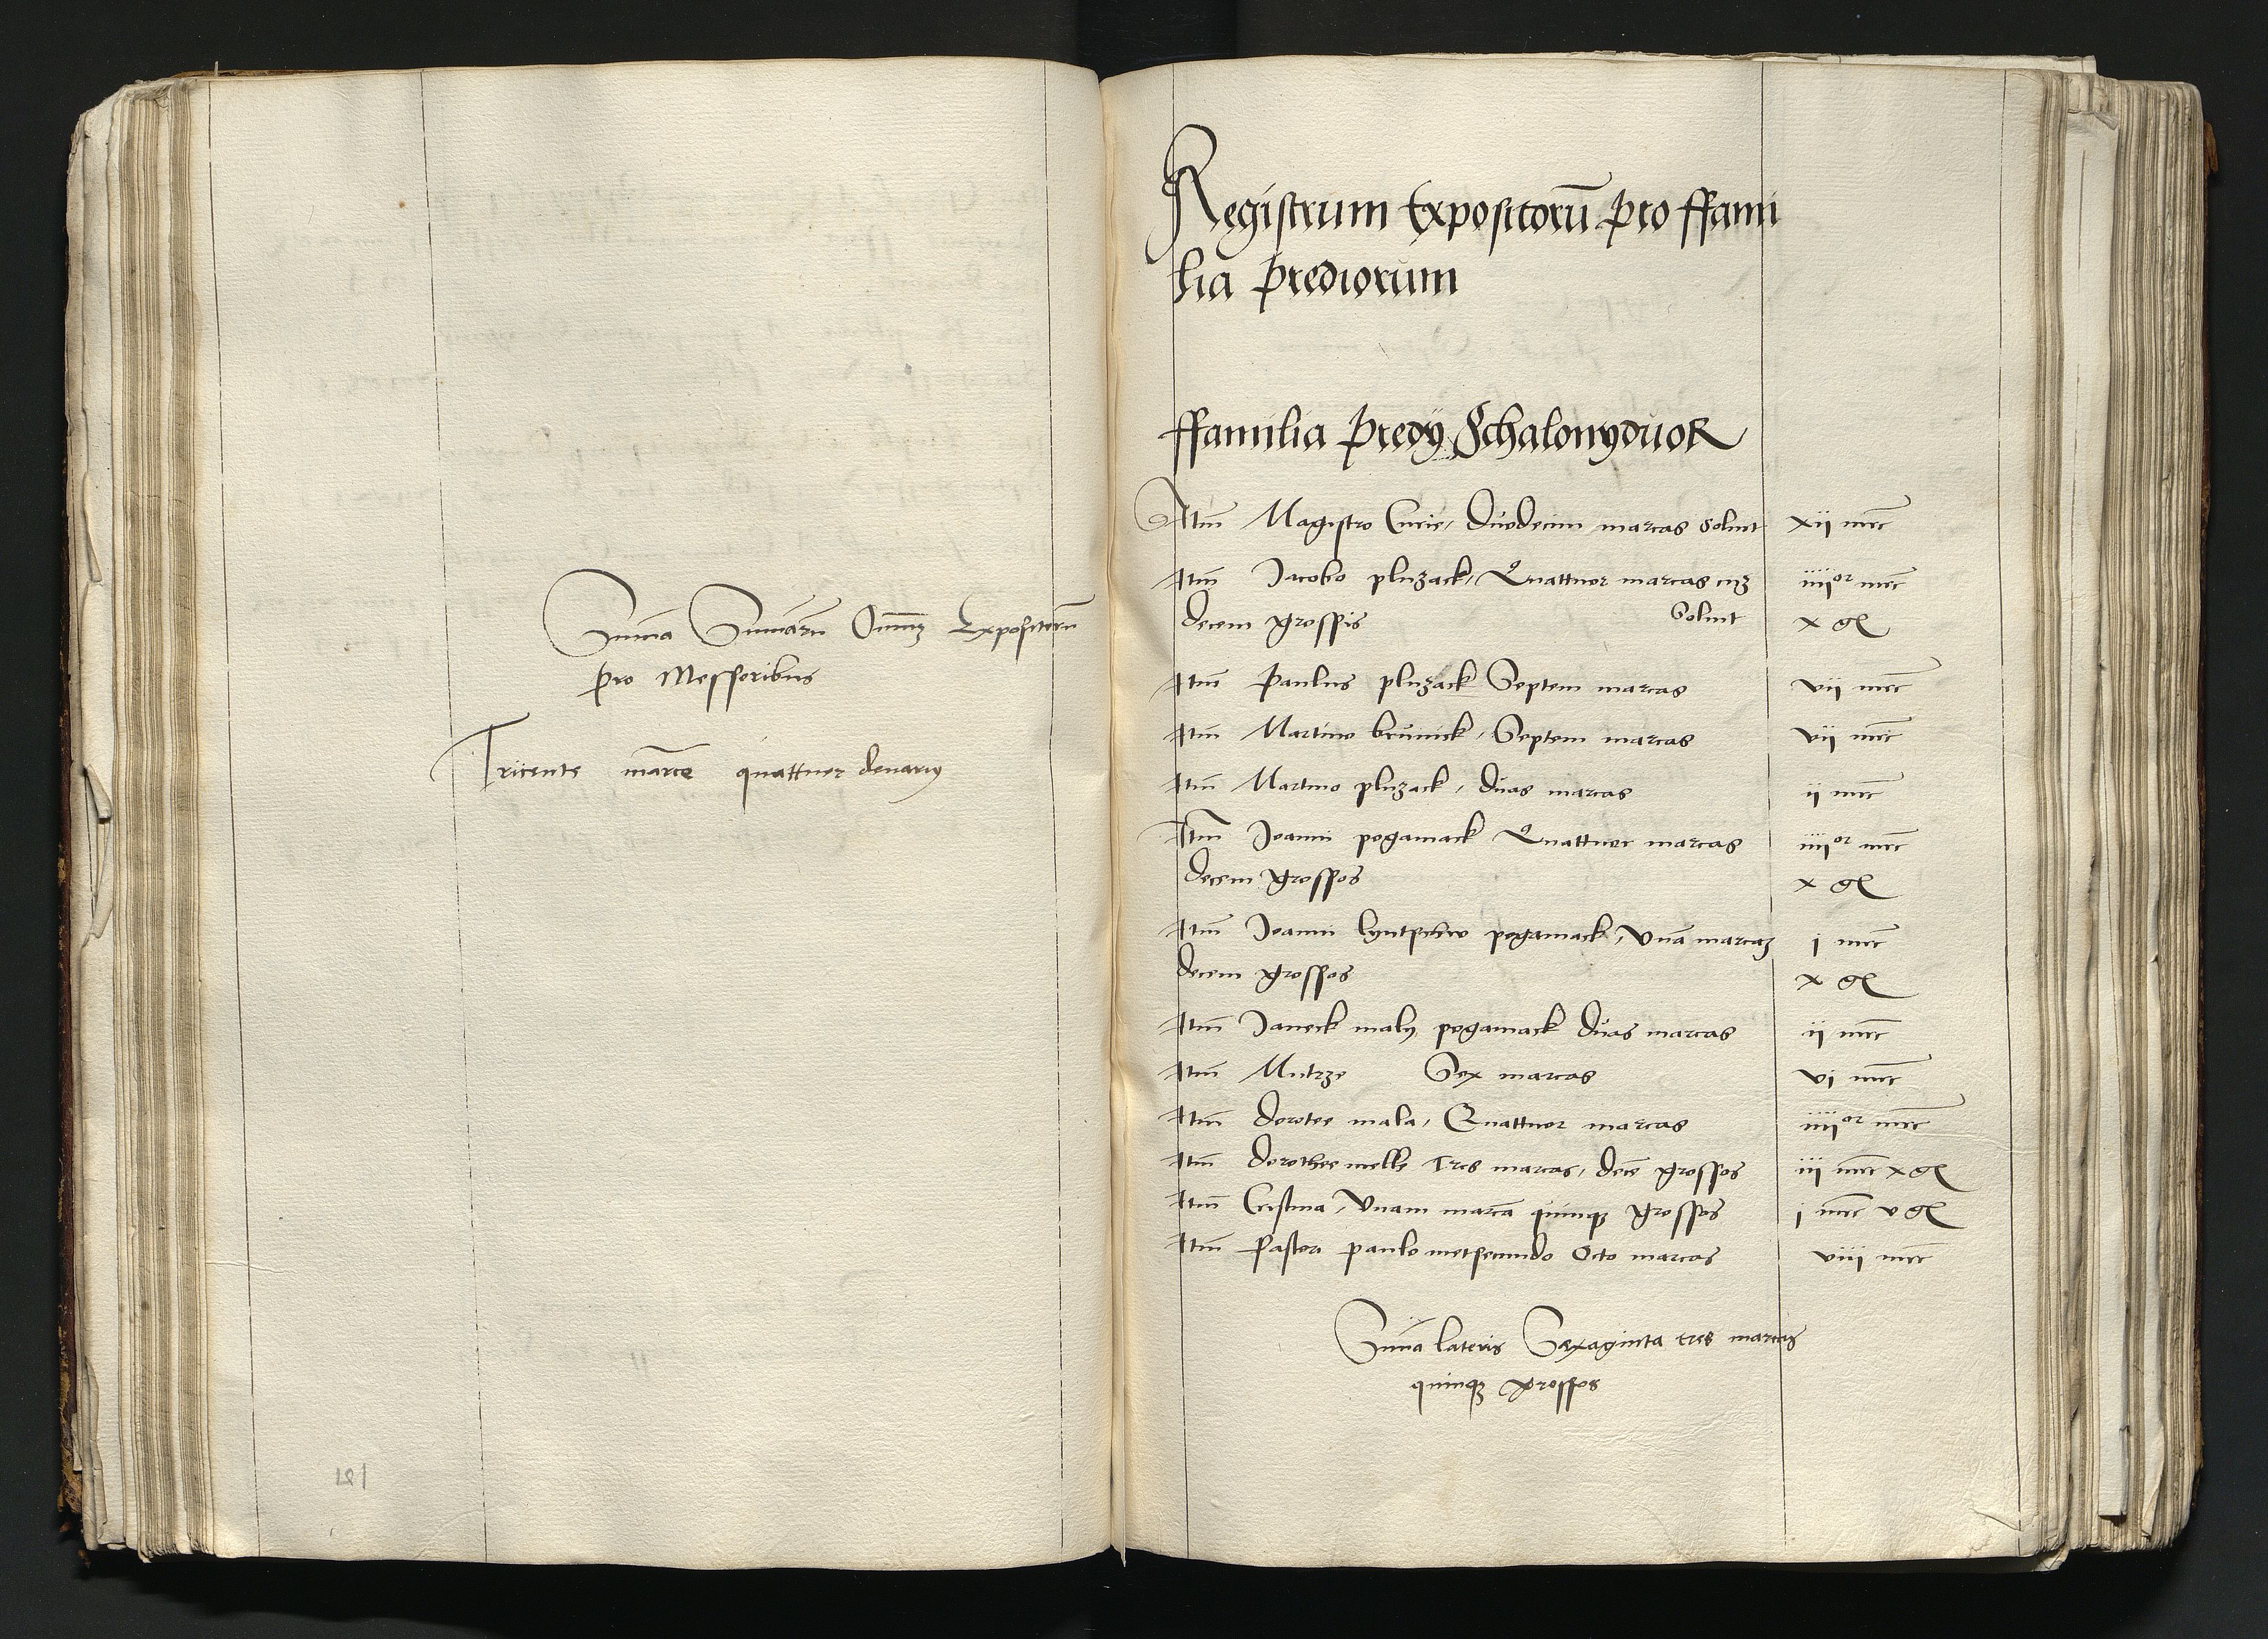 Sum̄a Sum̄arū Om̄iuꝫ Expositorū
pro Messoribus
Tricente marce quattuor denarij
181
Registrum Expositorū pro ffami
lia prediorum
ffamilia predÿ SchalonyduoR
Itm̄ Magistro Curie, duodecim marcas soluit xij mrc̄
Itm̄ Jacobo pluzack, Quattuor marcas cuꝫ iiijor mrc̄
decem grossis soluit x gl
Itm̄ Paulus pluzack Septem marcas vij mrc̄
Itm̄ Martino brunick, Septem marcas vij mrc̄
Itm̄ Martino pluzack, duas marcas ij mrc̄
Itm̄ Joanni pogamack Quattuor marcas iiijor mrc̄
decem grossos x gl
Itm̄ Joanni pogamack, Vnā marcaꝫ j mrc̄
decem grossos x gl
Itm̄ Janeck maly pogamack duas marcas ij mrc̄
Itm̄ Mutrze Sex marcas vi mrc̄
Itm̄ dorotee mala, Quattuor marcas iiijor mrc̄
Itm̄ dorothee melle Tres marcas, decē grossos iij mrc̄ x gl
Itm̄ Cristina, Vnam marcā quinqꝫ grossos j mrc̄ v gl
Itm̄ Pastori paulo Octo marcas viij mrc̄
Sum̄a lateris Sexaginta tres marcas
quinqꝫ grossos